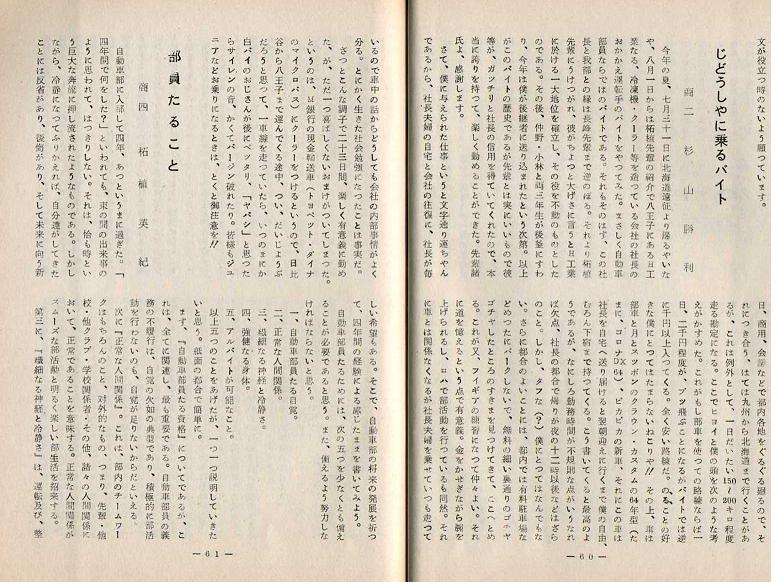 文が役立つ時のないよう願つています。
じどうしやに乗るバイト
商二　杉山勝利
今年の夏、七月三十一日に北海道遠征より帰るやいな
や、八月一日からは柘植先輩の紹介で八王子にある日工
業なる、冷凍機・クーラー等を造つている会社の社長の
おかかえ運転手のバイトをやつてみた。まさしく自動車
部員ならではのバイトである。それもそのはず、この社
長と我部との縁は長峰先輩まで逆のぼる。それより柘植
先輩にうけつがれ、彼がちょつと大げさに言うと日工業
に於ける一大地位を確立し、その役を不動のものとした
のである。その後、仲野、小林と両三年生が後釜にすわ
り、今年は僕が後継者に送り込まれたという次第。以上
がこのバイトの歴史であるが先輩とは実にいいもので彼
等が、ガツチリと社長の信用を得ていてくれたので、本
当に誇りを持つて、楽しく勤めることができた。先輩諸
氏よ、感謝します。
さて、僕に与えられた仕事というと文字通り運ちゃん
であるから、社長夫婦の自宅と会社の往復に、社長が毎
日、商用、会議などで都内各地をぐるぐる廻るので、そ
れにつき合う、はては九州から北海道まで行くことがあ
るが、これは例外として、一日だいたい150〜200キロ程度
走る勘定になる。ここでヒョイと僕の頭を次のような考
えがかすめた。これがもし部車を使つての路練ならば一
日、二千円程度が、ブツ飛ぶことになるがバイトでは逆
に千円以上入つてくる。全く安い路練だ。のることの好
きな僕にとつてはたまらないねこり!!　その上、車は
部車と月とスッポンのクラウン・カスタムの64年型（た
まに、コロナDX64）、ピカピカの新車。それにこの車は
社長を自宅へ送り届けると翌朝迎えに行くまで僕の自由、
むろん下宿まで持つてくる。こう書いてくると最高のよ
うであるが、なにしろ勤務時間が不規則な点がいうなれ
ば欠点、社長の都合で帰りが夜の十二時以後などはざら
のこと。しかし、タフな（？）僕にとつてはなんでもな
い。さらに都合のよいことには、都内では有料駐車場な
どめつたにパークしないで、無料の細い裏通りのゴチャ
ゴチャしたところのすきまを見つけてきて、ここへとめ
る。これが又、フィギアの練習になつて仲々よい。それ
に道を憶えという点でも有意義。金をかせぎながら腕を
上げられるし、ロハで部活動を行つているも同然。それ
に車とは関係なくなるが社長夫婦を乗せていつも走つて
－60－
いるので車中の話からどうしても会社の内部事情がよく
分る。とにかく生きた社会勉強になつたことは事実だ。
ざつとこんな調子で二十三日間、楽しく有意義に勤め
た、が、ただ一つ喜ばしくないおまけがついてしまつた。
というのは、M銀行の現金輸送車（トョペット・ダイナ
のマイクロバス）にクーラーをつけるというので、日比
谷から八王子まで運んでくる途中、つい、だいじょうぶ
だろうと思つて、二車線を走つていたら、いつのまにか
白バイのおじさんが後にベツタリ、「ヤバシ」と思つた
らサイレンの音、かくてバージン破れたり。皆様もジュ
ニアなどお乗りになるときは、とくと御注意を!!
部員たること
商四　柘植英紀
自動車部に入部して四年、あつというまに過ぎた。「
四年間で何をした？」といわれても、束の間の出来事の
ように思われて、はつきりしない。それは、恰も時とい
う巨大な奔流に押し流されたようなものである。しかし
ながら、冷静になつてふりかえれば、自分達がしてきた
ことには反省があり、後悔があり、そして未来に向う新
しい希望もある。そこで、自動車部の将来の発展を祈つ
て、四年間の経験による感じたままを書いてみよう。
自動車部員たるためには、次の五つを少なくとも備え
ることが必要であると思う。また、備えるよう努力しな
ければならないと思う。
一、自動車部員たる自覚。
二、正常な人間関係。
三、繊細なる神経と冷静さ。
四、強健なる身体。
五、アルバイトが可能なこと。
以上五つのことをあげたが、一つ一つ説明していきた
いと思う。紙面の都合で簡単に。
まず、『自動車部員たる資格』についてであるが、こ
れは、全てに関連し、最も重要である。自動車部員の義
務の不履行は、自覚の欠如の典型であり、積極的に部活
動を行わないのも、自覚が足りないからだといえる。
次に『正常な人間関係』。これは、部内のチームワー
クはもちろんのこと、対外的なもの、つまり、先輩・他
校・他クラブ・学校関係者・その他、諸々の人間関係に
おいて、正常であることを意味する。正常な人間関係が
スムーズな部活動と明るく楽しい部生活を招来する。
第三に、『繊細なる神経と冷静さ』は、運転及び、整
－61－